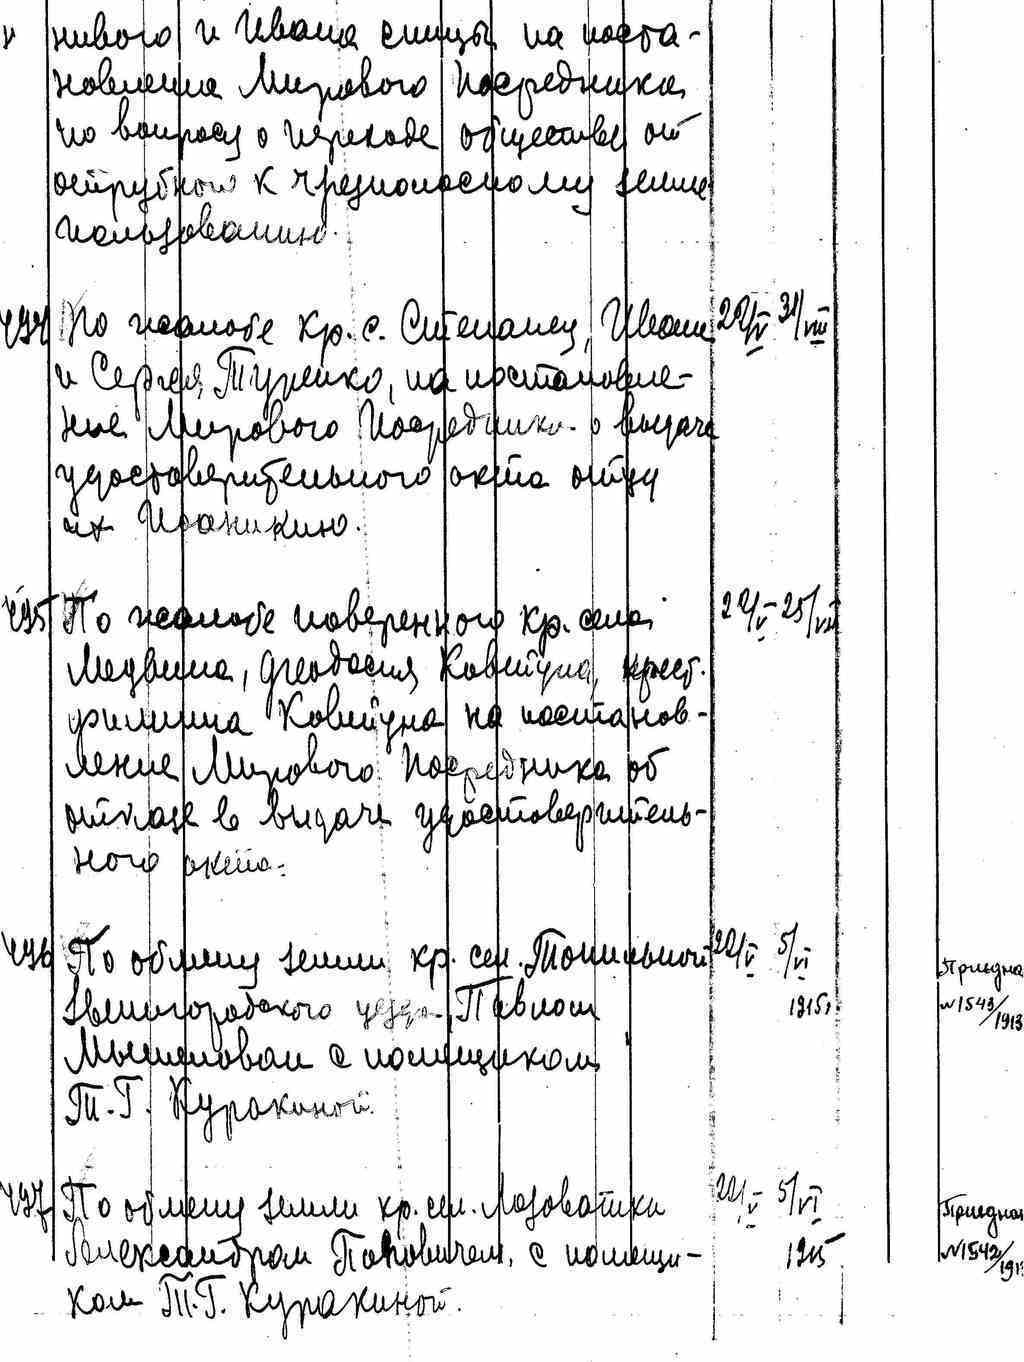 нивого и Ивана спицы на поста-
новление Мирового Посредника
по вопросу о переходе общества от
отрубного к чрезполосному земле
пользованию.
494 По жалобе кр. с. Степанец, Ивана 22/V 31/VIII
и Сергея Туренко, на постановле-
ние Мирового Посредника о выдаче
удостоверительного акта отцу
их Иоаникию.
495 По жалобе поверенного кр. села 22/V 25/
Медвина, Феодосия Ковтуна, крест.
Филиппа Ковтуна на постанов-
ление Мирового Посредника об
отказе в выдаче удостоверитель-
ного акта.
496 По обмену земли кр. сел. Топильной 22/V 5/VI
Звенигородского уезда, Павлом 1915
с помещиком
Т.Г. Куракиной
Приедна
№1543/1913
497 По обмену земли кр. сел. Лозоватки 22/V 5/VI
Александром Поповичем, с помещи- 1915
ком Т.Г. Куракиной.
Приедна
№1542/191